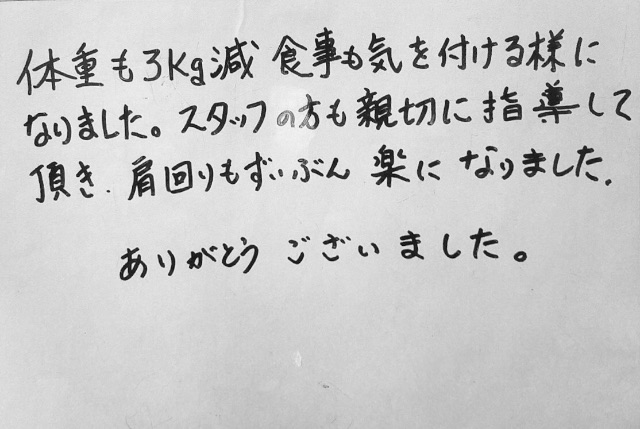 体重も3Kg減 食事も気を付ける様に
なりました。スタッフの方も親切に指導して
頂き、肩回りもずいぶん 楽に なりました。
ありがとう ございました。